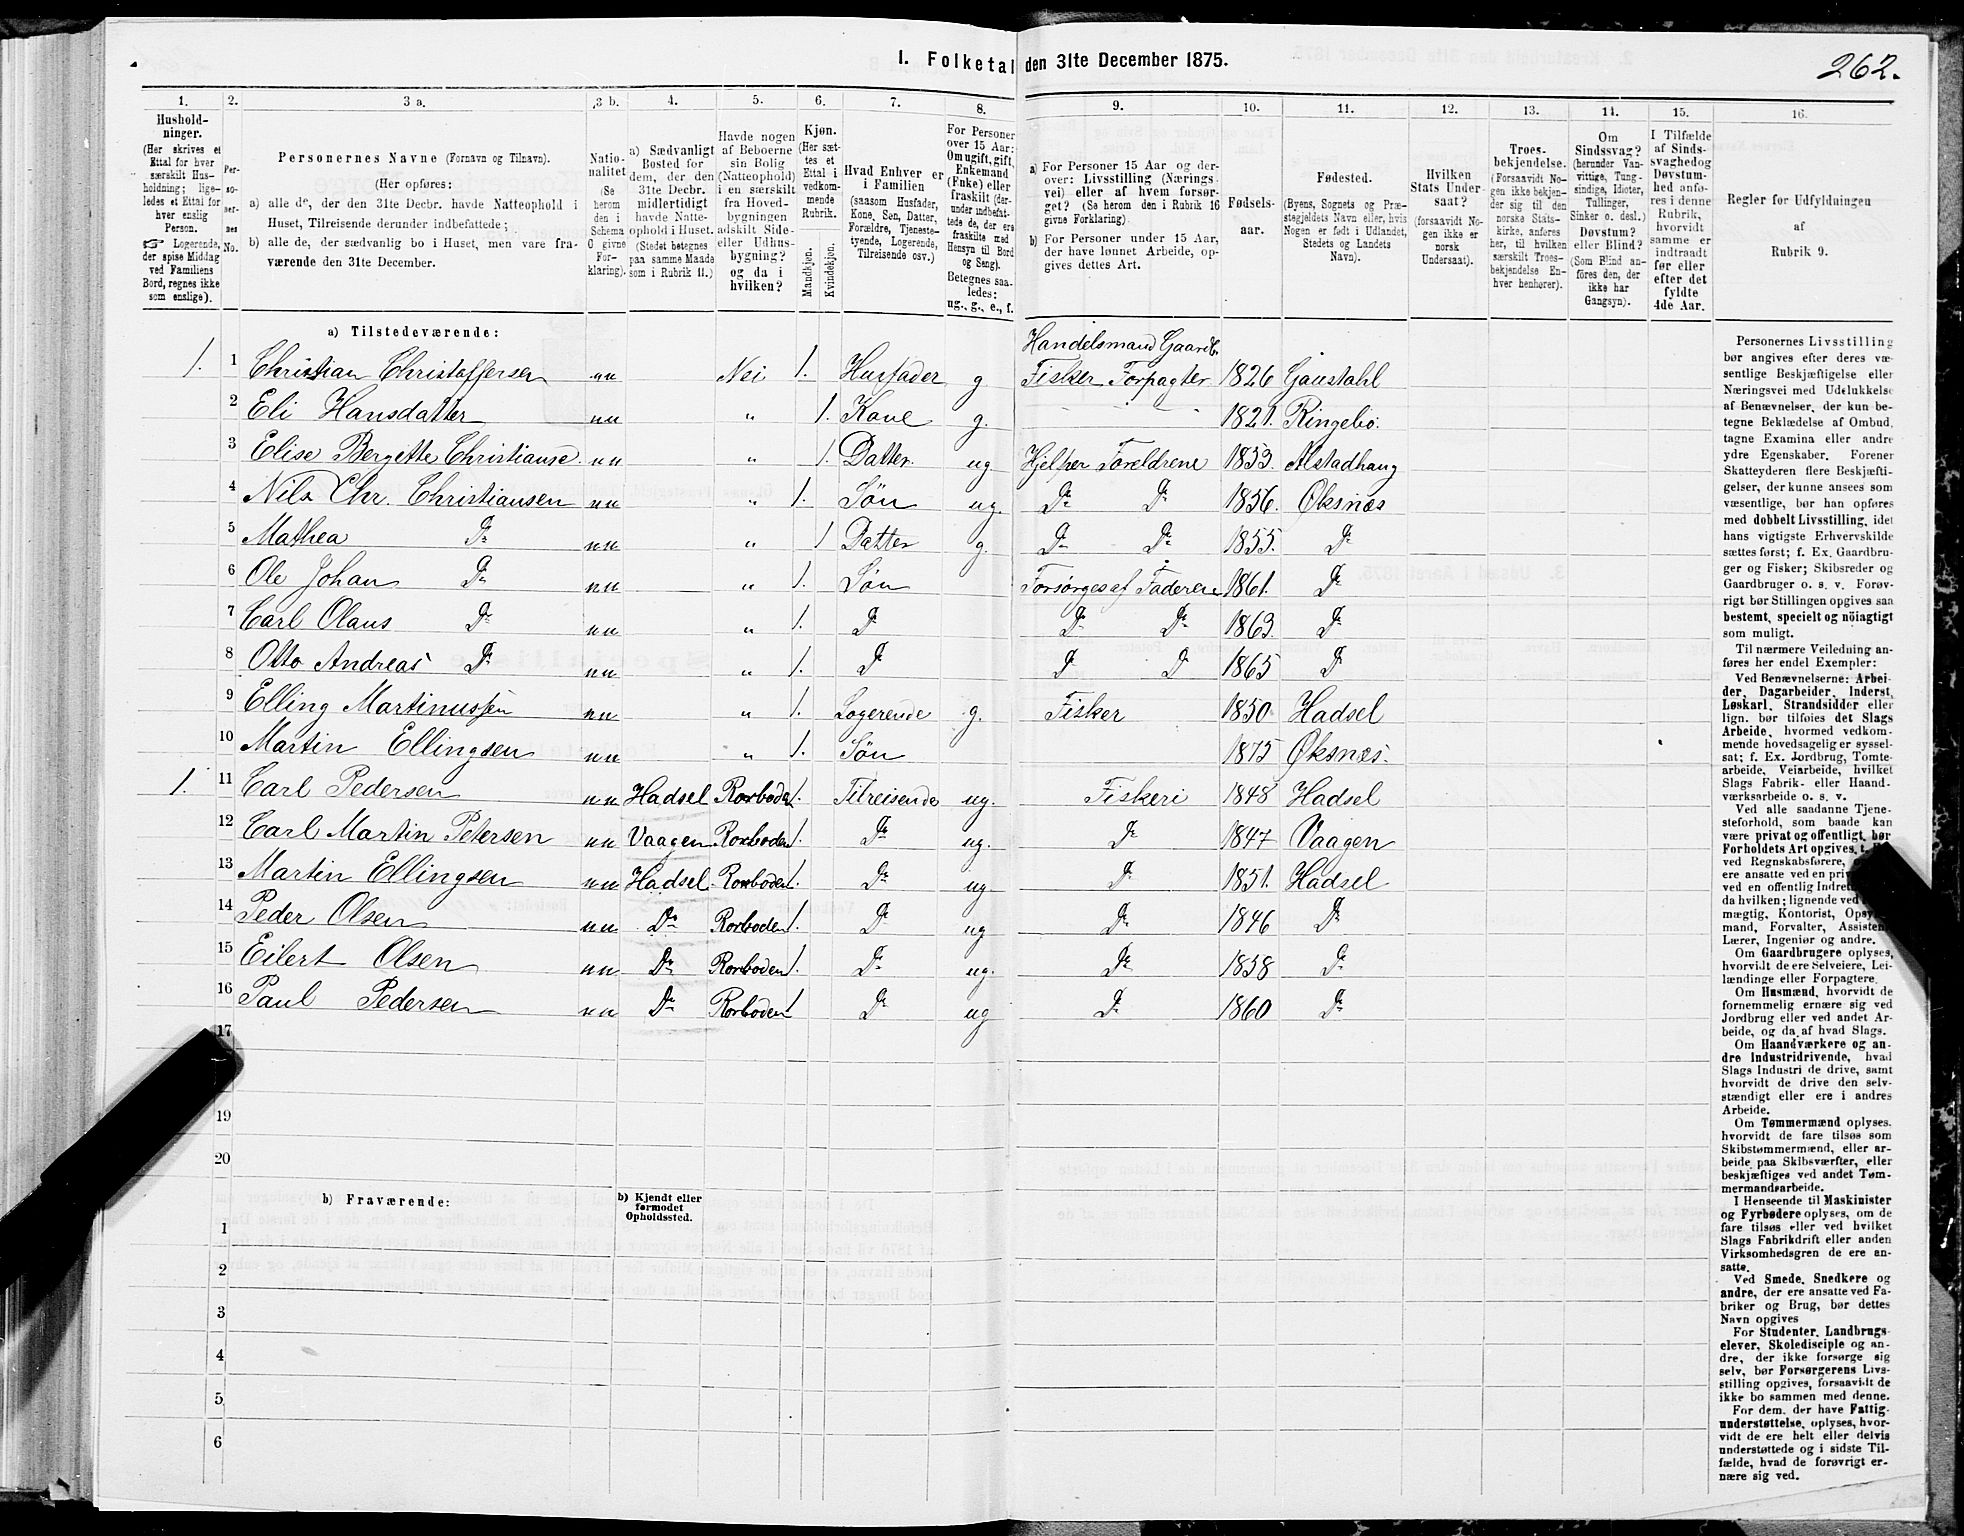 I. Folketal den 31te December 1875.
262.
1.
Hushold-
ninger.
(Her skrives et
Ettal for hver
særskilt Hus-
holdning; lige-
ledes et Ettal for
hver enslig
Person.
☞ Logerende,
der spise Middag
ved Familiens
Bord, regnes ikke
som enslige).
2.
Per-
so-
ner-
nes
No.
3 a.
Personernes Navne (Fornavn og Tilnavn).
(Her opføres:
a) alle de, der den 31te Decbr. havde Natteophold i
Huset, Tilreisende derunder indbefattede;
b) alle de, der sædvanlig bo i Huset, men vare fra-
værende den 31te December.
3 b.
Natio-
nalitet
(Se
herom
den i
Schema
O givne
For-
klaring).
4.
a) Sædvanligt
Bosted for
dem, der den
31te Decbr.
midlertidigt
havde Natte-
ophold i Huset.
(Stedet betegnes
paa samme Maade
som i Rubrik 11.)
5.
Havde nogen
af Beboerne
sin Bolig
(Natteophold)
i en særskilt
fra Hoved-
bygningen
adskilt Side-
eller Udhus-
bygning?
og da i
hvilken?
6.
Kjøn.
(Her sæt-
tes et
Ettal i
vedkom-
mende
Rubrik.
Mandkjøn.
Kvindekjøn.
7.
Hvad Enhver er
i Familien
(saasom Husfader,
Kone, Søn, Datter,
Forældre, Tjeneste-
tyende, Logerende,
Tilreisende osv.)
8.
For Personer
over 15 Aar:
Om ugift, gift,
Enkemand
(Enke) eller
fraskilt (der-
under indbefat-
tede de, der ere
fraskilte med
Hensyn til Bord
og Seng).
Betegnes saa-
ledes:
ug., g., e., f.
9.
a) For Personer 15 Aar og der-
over: Livsstilling (Nærings-
vei) eller af hvem forsør-
get? (Se herom den i Rubrik 16
givne Forklaring).
b) For Personer under 15 Aar,
der have lønnet Arbeide, op-
gives dettes Art.
10.
Fødsels-
aar.
11.
Fødested.
(Byens, Sognets og Præ-
stegjeldets Navn eller, hvis
Nogen er født i Udlandet,
Stedets og Landets
Navn).
12.
Hvilken
Stats Under-
saat?
(forsaavidt No-
gen ikke er
norsk
Undersaat).
13.
Troes-
bekjendelse.
(Forsaavidt No-
gen ikke bekjen-
der sig til den
norske Stats-
kirke, anføres
her, til hvilken
særskilt Troes-
bekjendelse En-
hver henhører).
14.
Om
Sindssvag?
(herunder Van-
vittige, Tung-
sindige, Idioter,
Tullinger,
Sinker o. desl.)
Døvstum?
eller Blind?
(Som Blind an-
føres den, der
ikke har
Gangsyn).
15.
I Tilfælde
af Sinds-
svaghed og
Døvstum-
hed anfø-
res i denne
Rubrik,
hvorvidt
samme er
indtraadt
før eller
efter det
fyldte
4de Aar.
16.
Regler for Udfyldningen
af
Rubrik 9.
a) Tilstedeværende:
Handelsmand Gaardb.
1. 1 Christian Christoffersen nn Nei 1. Husfader g Fisker Forpagter 1826 Gaustahl
2 Eli Hansdatter nn " 1. Kone g. " " " 1821. Ringebo.
3 Elise Bergette Christianse nn " 1 Datter. ug. Hjelper Foreldrene 1853. Alstadhaug
4 Nils Chr. Christiansen nn " 1. Søn ug. Do Do 1856. Øksnæs
5 Mathea Do nn " 1 Datter g. Do Do 1855. Do
6 Ole Johan Do nn " 1. Søn Forsørges af Faderen 1861. Do
7 Carl Olaus Do nn " 1. Do Do Do 1863. Do
8 Otto Andreas Do nn " 1. Do Do Do 1865 Do
9 Elling Martinussen nn " 1. Logerende g. Fisker 1850 Hadsel
10 Martin Ellingsen nn " 1. Søn 1875 Øksnæs.
1. 11 Carl Pedersen nn Hadsel Rorboden 1. Tilreisende ug. Fiskeri 1848 Hadsel
12 Carl Martin Petersen nn Vaagen Rorboden 1. Do ug. Do 1847 Vaagen
13 Martin Ellingsen nn Hadsel Rorboden 1. Do ug Do 1851. Hadsel
14 Peder Olsen nn Do Rorboden 1. Do ug Do 1846 Do
15 Eilert Olsen nn Do Rorboden 1. Do ug. Do 1858 Do
16 Paul Pedersen nn Do Rorboden 1 Do ug Do 1860 Do
17
19
20
b) Fraværende:
b) Kjendt eller
formodet
Opholdssted.
1
2
3
4
5
6
Personernes Livsstilling
bør angives efter deres væ-
sentlige Beskjæftigelse eller
Næringsvei med Udelukkelse
af Benævnelser, der kun be-
tegne Beklædelse af Ombud,
tagne Examina eller andre
ydre Egenskaber. Forener
Skatteyderen flere Beskjæfti-
gelser, der kunne ansees som
væsentlige, bør han opføres
med dobbelt Livsstilling, idet
hans vigtigste Erhvervskilde
sættes først; f. Ex. Gaardbru-
ger og Fisker; Skibsreder og
Gaardbruger o. s. v. Forøv-
rigt bør Stillingen opgives saa
bestemt, specielt og nöiagtigt
som muligt.
Til nærmere Veiledning an-
føres her endel Exempler:
Ved Benævnelserne: Arbei-
der, Dagarbeider, Inderst,
Løskarl, Strandsidder eller
lign. bør tilføies det Slags
Arbeide, hvormed vedkom-
mende hovedsagelig er syssel-
sat; f. Ex. Jordbrug, Tomte-
arbeide, Veiarbeide, hvilket
Slags Fabrik- eller Haand-
værksarbeide o. s. v.
Ved alle saadanne Tjene-
steforhold, som baade kan
være privat og offentligt, bør
Forholdets Art opgives,
ved Regnskabsførere,
ere ansatte ved en
ved en offentlig
da hvilken; lignende ved
mægtig, Kontorist,
mand, Forvalter,
Lærer, Ingeniør og andre.
Om Gaardbrugere oplyses,
hvorvidt de ere Selveiere, Lei-
lændinge eller Forpagtere.
Om Husmænd, hvorvidt de
fornemmelig ernære sig ved
Jordbrug eller ved andet Ar-
beide, og da af hvad Slags.
Om Haandværkere og an-
dre Industridrivende, hvad
Slags Industri de drive, samt
hvorvidt de drive den selv-
stændigt eller ere i andres
Arbeide.
Om Tømmermænd oplyses,
hvorvidt de fare tilsøs som
Skibstømmermænd, eller ar-
beide paa Skibsværfter, eller
beskjæftiges ved andet Tøm-
mermandsarbeide.
I Henseende til Maskinister
og Fyrbødere oplyses, om de
fare tilsøs eller ved hvilket
Slags Fabrikdrift eller anden
Virksomhedsgren de ere an-
satte.
Ved Smede, Snedkere og
andre, der ere ansatte ved Fa-
briker og Brug, bør dettes
Navn opgives
For Studenter, Landbrugs-
elever, Skoledisciple og an-
dre, der ikke forsørge sig
selv, bør Forsørgerens Livs-
stilling opgives, forsaavidt de
ikke bo sammen med denne.
For dem, der have Fattig-
understøttelse, oplyses, hvor-
vidt de ere helt eller delvis
understøttede og i sidste Til-
fælde, hvad de forøvrigt er-
nære sig ved.